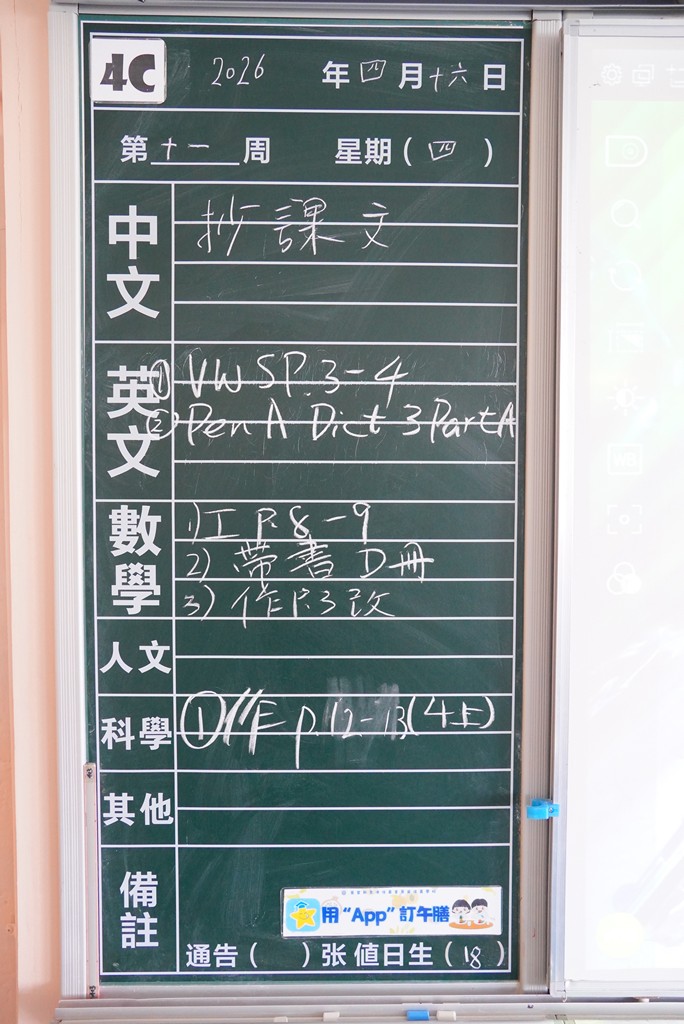 4C 2026 年 四 月 十六 日
第 十一 周 星期 ( 四 )
中文
抄課文
英文
① VWS P.3-4
② Pen A Dict 3 Part A
數學
1) 工 P.8-9
2) 帶書D冊
3) 作P.3改
人文
科學
① 作 p.12-13(4上)
其他
備註
用“App”訂午膳
通告 ( ) 张 值日生 ( 18 )